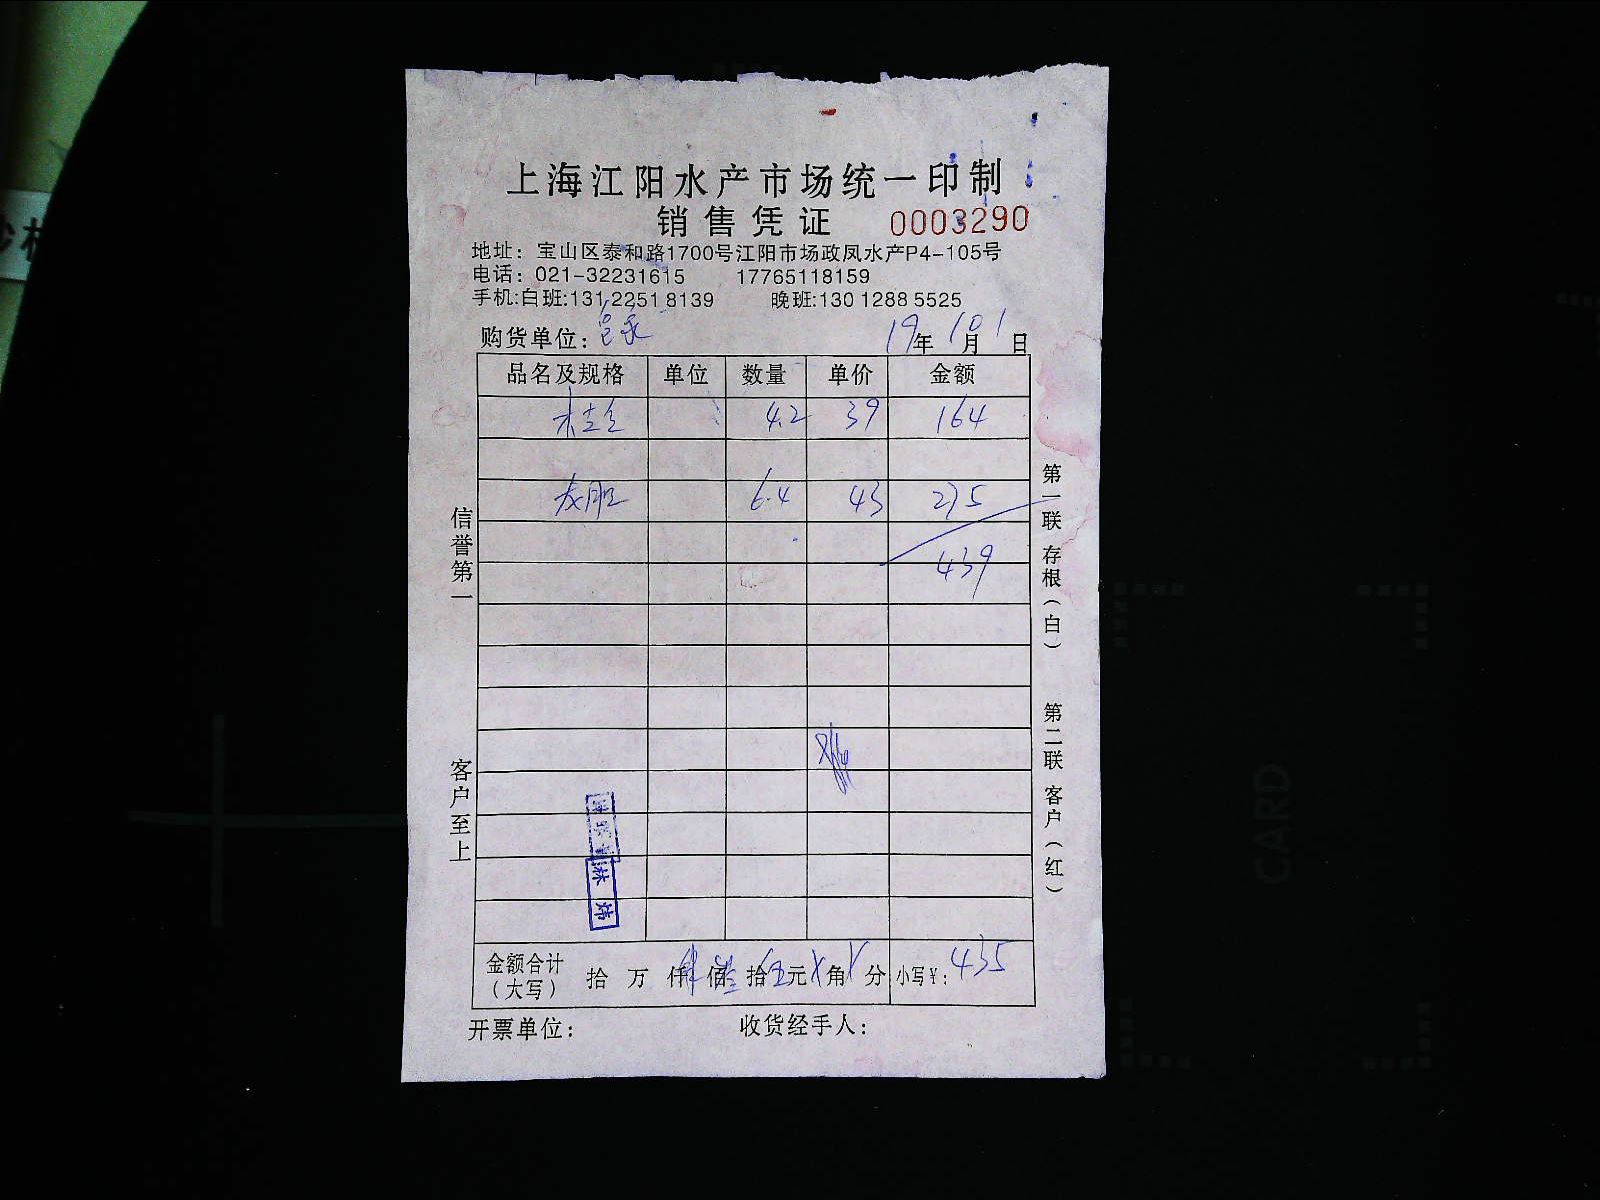 上海江阳水产市场统一印制
销售凭证 0003290
地址：宝山区泰和路1700号江阳市场政凤水产P4-105号
电话：021-32231615 17765118159
手机:白班:131 2251 8139 晚班:130 1288 5525
购货单位： 19年10月1日
品名及规格 单位 数量 单价 金额
4.2 39 164
6.4 43 275
439
信誉第一
客户至上
第一联 存根（白）
第二联 客户（红）
金额合计（大写） 拾 万 仟肆佰叁拾伍元 角 分 小写￥: 435
开票单位： 收货经手人：
CARD